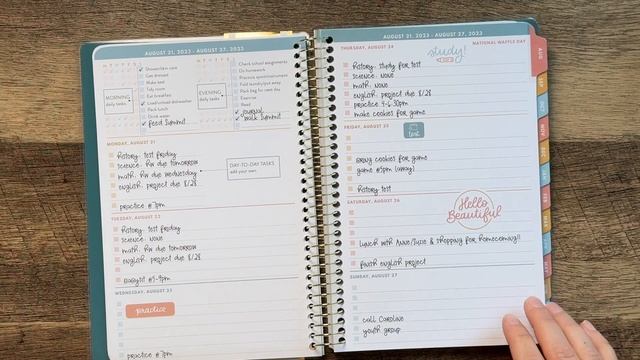 AUGUST 21, 2023 - AUGUST 27, 2023
M T W T F S S
Shower/skin care
Get dressed
Make bed
Tidy room
Eat breakfast
Load/unload dishwasher
Pack lunch
Drink water
feed Summit
MORNING
daily tasks
M T W T F S S
Check school assignments
Do homework
Practice sport/instrument
Fold laundry/put away
Pack bag for next day
Exercise
Read
journal
walk Summit
EVENING
daily tasks
MONDAY, AUGUST 21
history: test friday
science: hw due tomorrow
math: hw due wednesday
english: project due 8/28
practice @ 7pm
DAY-TO-DAY TASKS
add your own
TUESDAY, AUGUST 22
history: test friday
science: none
math: hw due tomorrow
english: project due 8/28
babysit 6-9pm
WEDNESDAY, AUGUST 23
practice
practice @ 7pm
AUGUST 21, 2023 - AUGUST 27, 2023
THURSDAY, AUGUST 24
study!
NATIONAL WAFFLE DAY
history: study for test
science: none
math: none
english: project due 8/28
practice 4-6:30pm
make cookies for game
FRIDAY, AUGUST 25
test
bring cookies for game
game @ 5pm (away)
history test
SATURDAY, AUGUST 26
Hello
Beautiful
lunch with Anne/Suzie & shopping for homecoming!!
finish english project
SUNDAY, AUGUST 27
call Caroline
youth group
AUG
SEP
OCT
NOV
DEC
JAN
FEB
MAR
APR
MAY
JUN